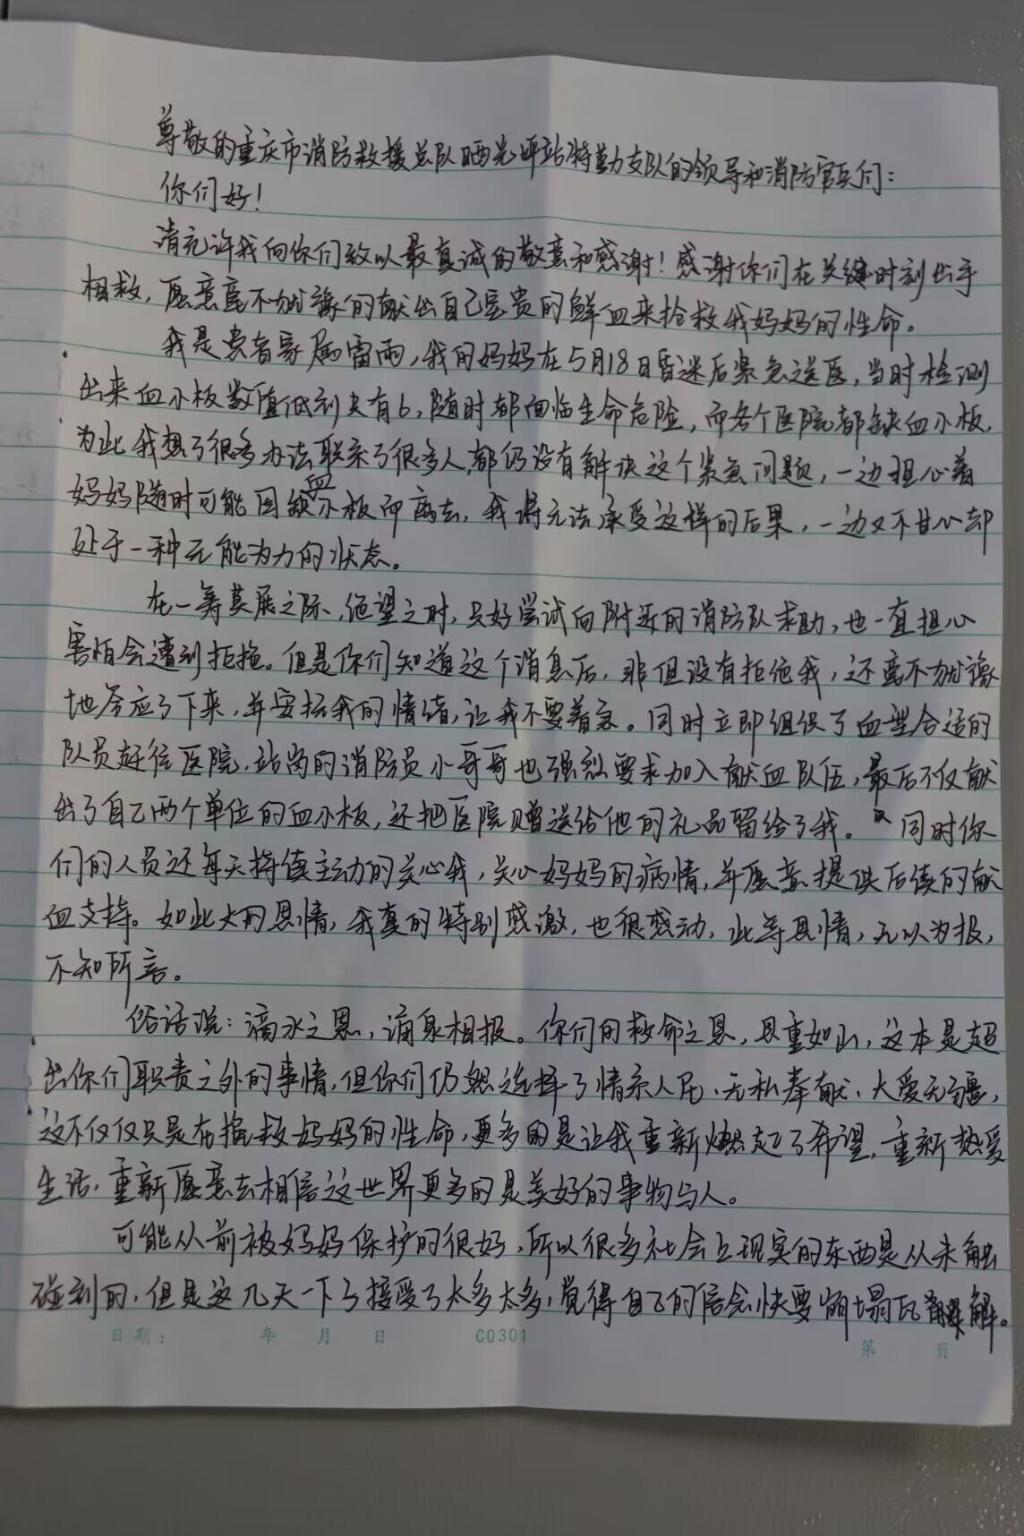 尊敬的重庆市消防救援总队晒光坪站特勤支队的领导和消防官兵们：
你们好！
请允许我向你们致以最真诚的敬意和感谢！感谢你们在关键时刻出手
相救，愿意毫不犹豫的献出自己宝贵的鲜血来抢救我妈妈的性命。
我是患者家属雷雨，我的妈妈在5月18日昏迷后紧急送医，当时检测
出来血小板数值低到只有6，随时都面临生命危险，而各个医院都缺血小板，
为此我想了很多办法联系了很多人，都仍没有解决这个紧急问题，一边担心着
妈妈随时可能因缺血小板而离去，我将无法承受这样的后果，一边又不甘心却
处于一种无能为力的状态。
在一筹莫展之际、绝望之时，只好尝试向附近的消防队求助，也一直担心
害怕会遭到拒绝。但是你们知道这个消息后，非但没有拒绝我，还毫不犹豫
地答应了下来，并安抚我的情绪，让我不要着急。同时立即组织了血型合适的
队员赶往医院，站岗的消防员小哥哥也强烈要求加入献血队伍，最后不仅献
出了自己两个单位的血小板，还把医院赠送给他的礼品留给了我。同时你
们的人员还每天持续主动的关心我，关心妈妈的病情，并愿意提供后续的献
血支持。如此大的恩情，我真的特别感激，也很感动，此等恩情，无以为报，
不知所言。
俗话说：滴水之恩，涌泉相报。你们的救命之恩，恩重如山，这本是超
出你们职责之外的事情，但你们仍然选择了情系人民、无私奉献、大爱无疆，
这不仅仅只是在挽救妈妈的性命，更多的是让我重新燃起了希望，重新热爱
生活，重新愿意去相信这世界更多的是美好的事物与人。
可能从前被妈妈保护的很好，所以很多社会上现实的东西是从未触
碰到的，但是这几天一下子接受了太多太多，觉得自己的信念快要崩塌瓦解。
日期： 年 月 日 CQ301 第 页